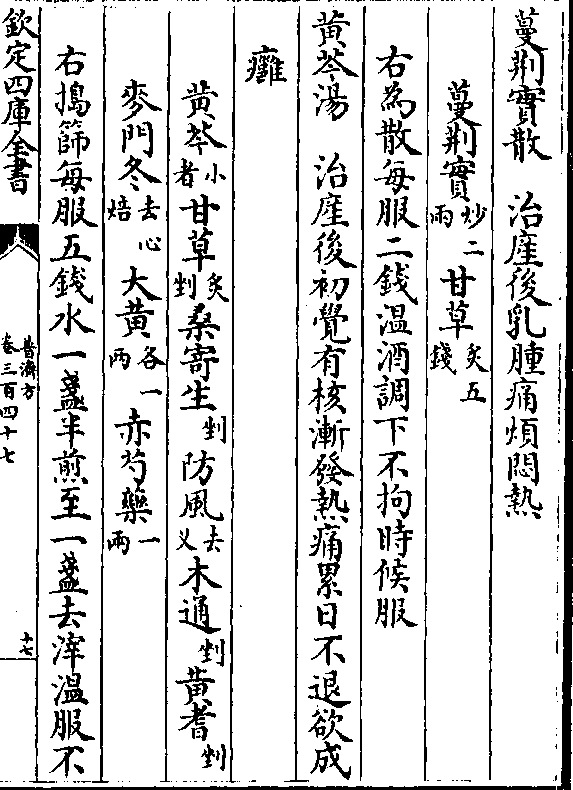 蔓荆實散　治産後乳腫痛煩悶熱
蔓荆實炒二兩甘草炙五錢
右為散每服二錢温酒調下不拘時候服
黄芩湯　治産後初覺有核漸發熱痛累日不退欲成
癰
黄芩小者甘草炙剉桑寄生剉防風去义木通剉黄耆剉
麥門冬去心焙大黄各一兩赤芍藥一兩
右搗篩每服五錢水一盞半煎至一盞去滓温服不
欽定四庫全書
普濟方
卷三百四十七
十七